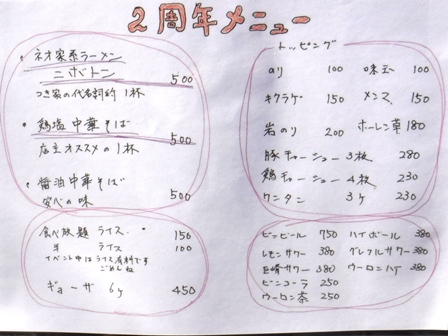 2周年メニュー
・ネオ家系ラーメン
ニボトン 500
つき家の代名詞的1杯
・鶏塩中華そば 500
店主オススメの1杯
・醤油中華そば 500
安心の味
食べ放題ライス 150
半ライス 100
イベント中はライス有料です
ごめんね
ギョーザ 6ヶ 450
トッピング
のり 100 味玉 100
キクラゲ 150 メンマ 150
岩のり 200 ホーレン草 180
豚チャーシュー 3枚 280
鶏チャーシュー 4枚 230
ワンタン 3ヶ 230
ビンビール 750 ハイボール 380
レモンサワー 380 グレフルサワー 380
巨峰サワー 380 ウーロンハイ 380
ビンコーラ 250
ウーロン茶 250